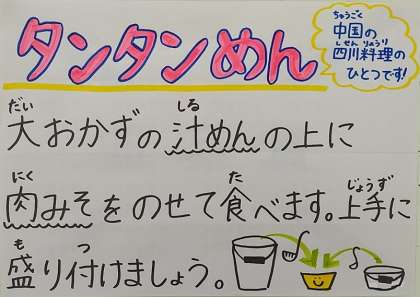 タンタンめん
ちゅうごく
中国の
しせんりょうり
四川料理の
ひとつです!
だい しる
大おかずの汁めんの上に
にく た じょうず
肉みそをのせて食べます。上手に
も つ
盛り付けましょう。